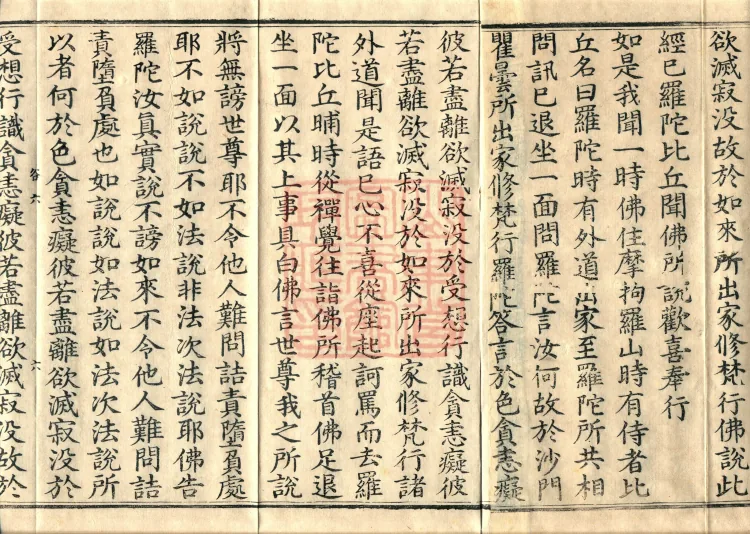 欲滅寂没故於如來所出家修梵行佛說此
經已羅陀比丘聞佛所說歡喜奉行
如是我聞一時佛住摩拘羅山時有侍者比
丘名曰羅陀時有外道出家至羅陀所共相
問訊已退坐一面問羅陀言汝何故於沙門
瞿曇所出家修梵行羅陀答言於色貪恚癡
彼若盡離欲滅寂没於受想行識貪恚癡彼
若盡離欲滅寂没於如來所出家修梵行諸
外道聞是語已心不喜從座起訶罵而去羅
陀比丘晡時從禪覺往詣佛所稽首佛足退
坐一面以其上事具白佛言世尊我之所說
將無謗世尊耶不令他人難問詰責墮負處
耶不如說說不如法說非法次法說耶佛告
羅陀汝真實說不謗如來不令他人難問詰
責墮負處也如說說如法說如法次法說所
以者何於色貪恚癡彼若盡離欲滅寂没於
六
受想行識貪恚癡彼若盡離欲滅寂没故於